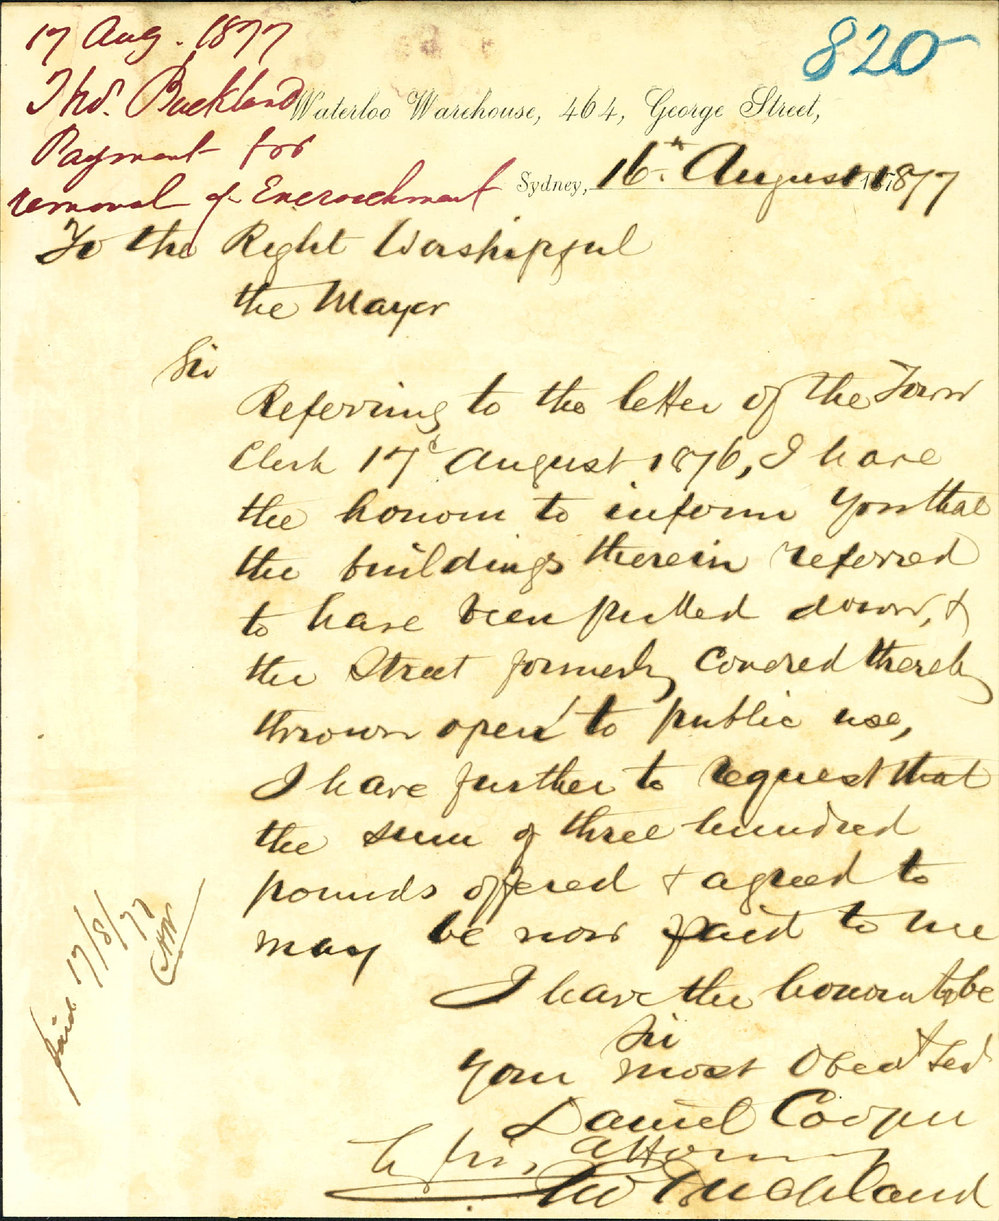 17 Aug. 1877
Thos. Buckland
Payment for
removal of Encroachment
820
Waterloo Warehouse, 464, George Street,
Sydney, 16th August 1877
To the Right Worshipful
the Mayor
Sir
Referring to the letter of the Town
Clerk 17th August 1876, I have
the honour to inform you that
the buildings therein referred
to have been pulled down, &
the Street formerly covered thereby
thrown open to public use,
I have further to request that
the sum of three hundred
pounds offered & agreed to
may be now paid to me
I have the honour to be
Sir
Your most Obedt Sevt
Daniel Cooper
by his attorney
Thos Buckland
paid 17/8/77